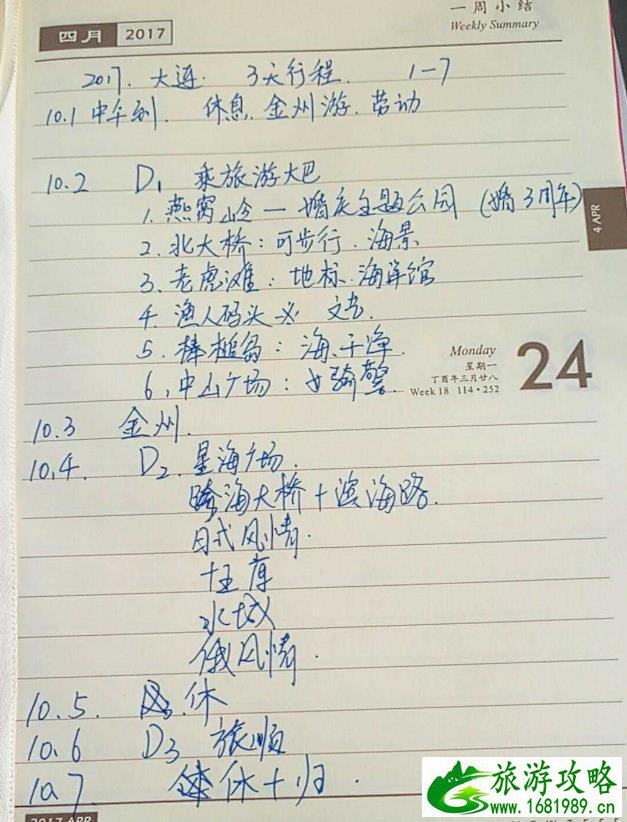 一周小结
Weekly Summary
四月 2017
2017. 大连. 3天行程. 1-7
10.1 中午到. 休息. 金州游. 劳动
10.2 D1 乘旅游大巴
1. 燕窝岭—婚庆主题公园 (婚3周年)
4 APR
2. 北大桥:可步行.海景
3. 老虎滩:地标.海洋馆
4. 渔人码头
5. 棒槌岛:海、干净.
6. 中山广场:女骑警.
Monday
星期一
丁酉年三月廿八
Week 18 114·252
24
10.3 金州.
10.4. D2. 星海广场.
跨海大桥+滨海路.
日式风情.
水城
俄风情.
10.5. 休
10.6 D3 旅顺
10.7 休+归.
2017 APR
旅游攻略
www.1681989.cn